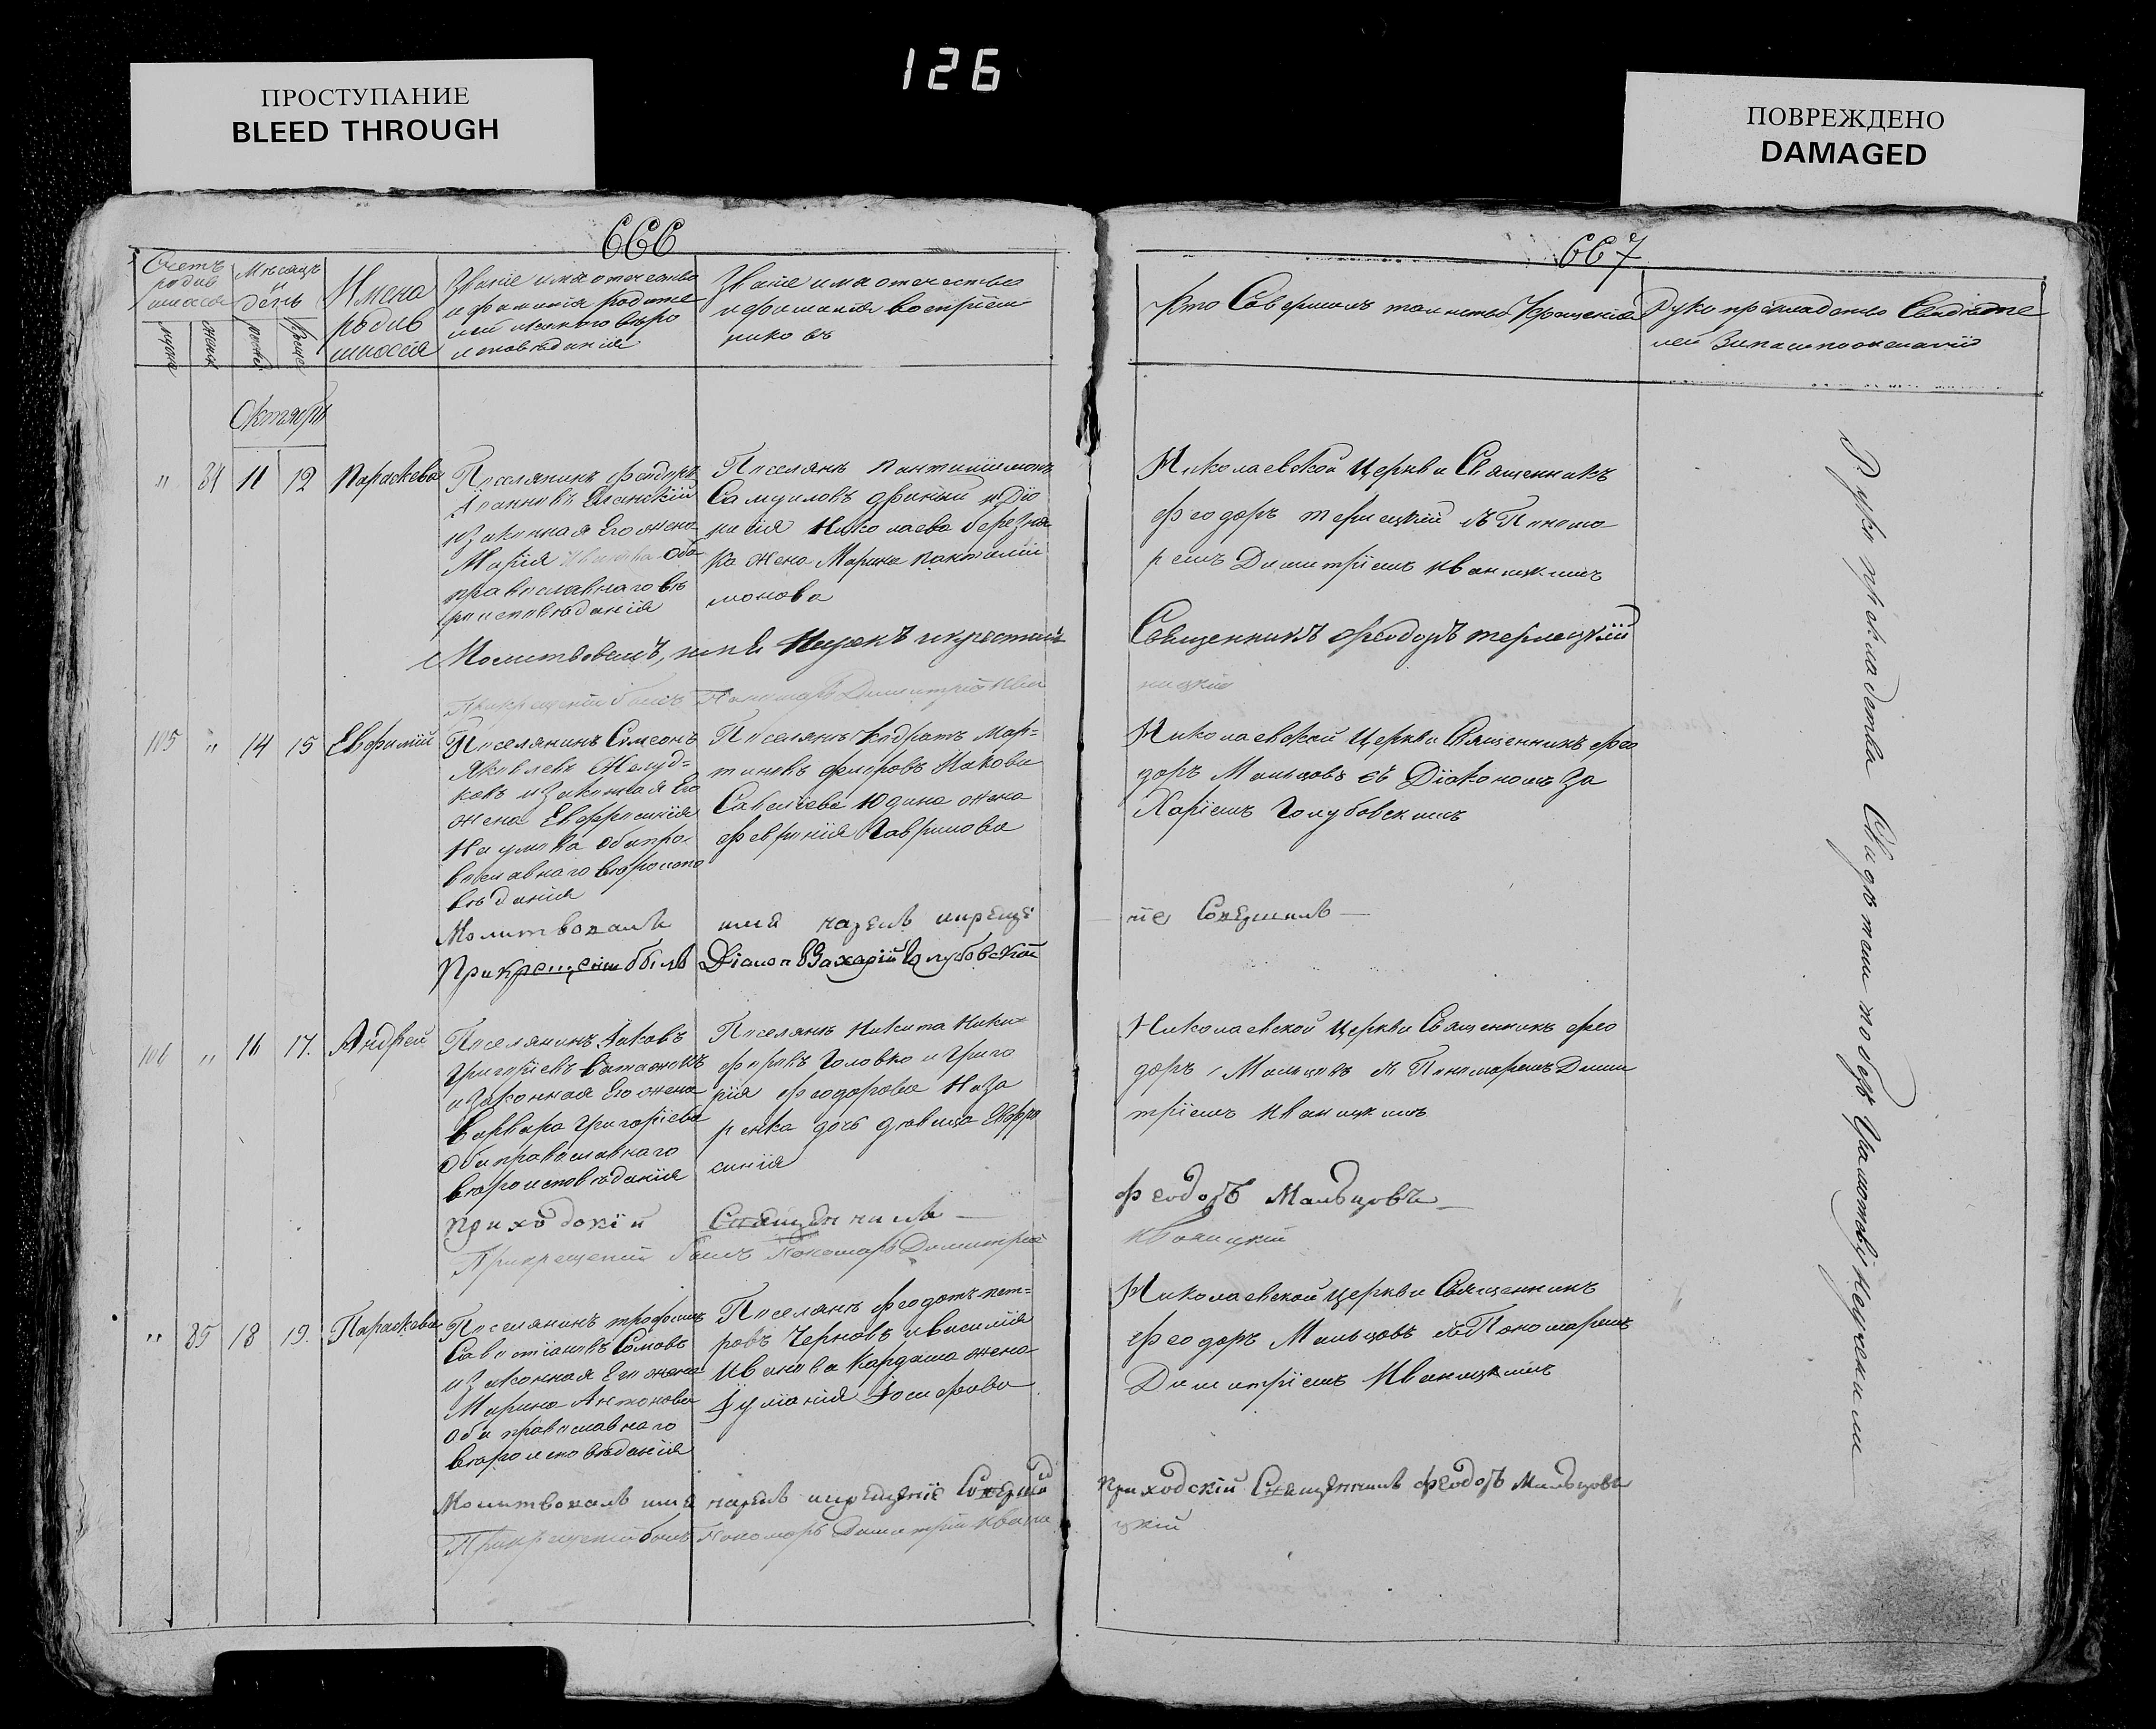 126
ПРОСТУПАНИЕ
BLEED THROUGH
ПОВРЕЖДЕНО
DAMAGED
666
Счетъ
родив
шихся
муже
женс
Мѣсяцъ
и
день
рожд
креще
Имена
родив
шихся
Званіе имя отечество
и фамилія родите
лей и какого вѣро
исповѣданія
Званіе имя отечество
и фамилія воспріем
никовъ
Октября
" 84 11 12 Параскева
Поселянинъ Феодоръ
Іоанновъ
и законная Его жена
Марія Оба
православнаго вѣ
роисповѣданія
Поселянъ Пантилиимонъ
Самуиловъ
Николаева Березня
ка жена Марина Пантелии
монова
Молитвовалъ, имя Нарекъ и крестилъ
При крещеніи былъ Пономарь Димитрій Ива
105 " 14 15 Евфимій
Поселянинъ Симеонъ
Яковлевъ Желуд=
ковъ и законная Его
жена Евфросинія
Наумова Оба пра
вославнаго вѣроиспо
вѣданія
Поселянъ Кодратъ Мар=
тиновъ Якова
Савелиева Юдина жена
Феврония Гаврилова
Молитвовалъ имя нарелъ и креще
При крещеніи былъ Діаконъ Захарій Голубовскій
106 " 16 17. Андрей
Поселянинъ Іаковъ
Григоріевъ
и законная Его жена
Варвара Григоріева
Оба православнаго
вѣроисповѣданія
Поселянъ Никита Ники=
форовъ Головко и Григо
рія Феодорова Наза
ренка дочь девица Евфро
синія
Приходскій Священникъ
При крещеніи былъ Пономарь Димитрій
" 85 18 19. Параскева
Поселянинъ Трофимъ
Савостіановъ Сомовъ
и законная Его жена
Марина Антонова
Оба православнаго
вѣроисповѣданія
Поселянъ Феодотъ Пет=
ровъ Черновъ и Василия
Иванова Кардаша жена
Іулианія Іосифова
Молитвовалъ имя нарелъ и крещеніе Совершилъ
При крещеніи былъ Пономарь Димитрій Ивани
667
Кто Совершилъ таинство Крещенія
Рукоприкладство Свидѣте
лей записи по желанію
Николаевской Церкви Священникъ
Феодоръ Терлецкій съ Понома
ремъ Димитріемъ Иваницкимъ
Священникъ Феодоръ Терлецкій
ницкій
Николаевской Церкви Священникъ Фео
доръ Мальцовъ съ Діакономъ За
харіемъ Голубовскимъ
ніе Совершилъ
Николаевской Церкви Священникъ Фео
доръ Мальцовъ съ Пономаремъ Дими
тріемъ Иваницкимъ
Феодоръ Мальцовъ
Иваницкій
Николаевской Церкви Священникъ
Феодоръ Мальцовъ съ Пономаремъ
Димитріемъ Иваницкимъ
Приходскій Священникъ Феодоръ Мальцовъ
цкій
Рукоприкладства Свидѣтели